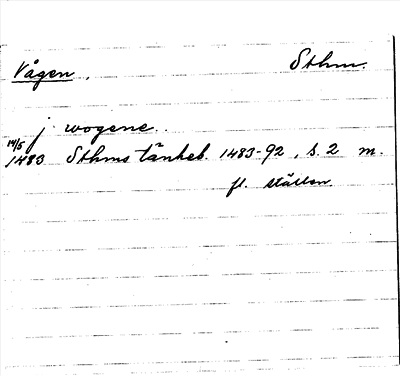 Vågen. Sthm.
j wogene.
14/5 1483 Sthms tänkeb. 1483-92, s. 2 m.
fl. ställen.